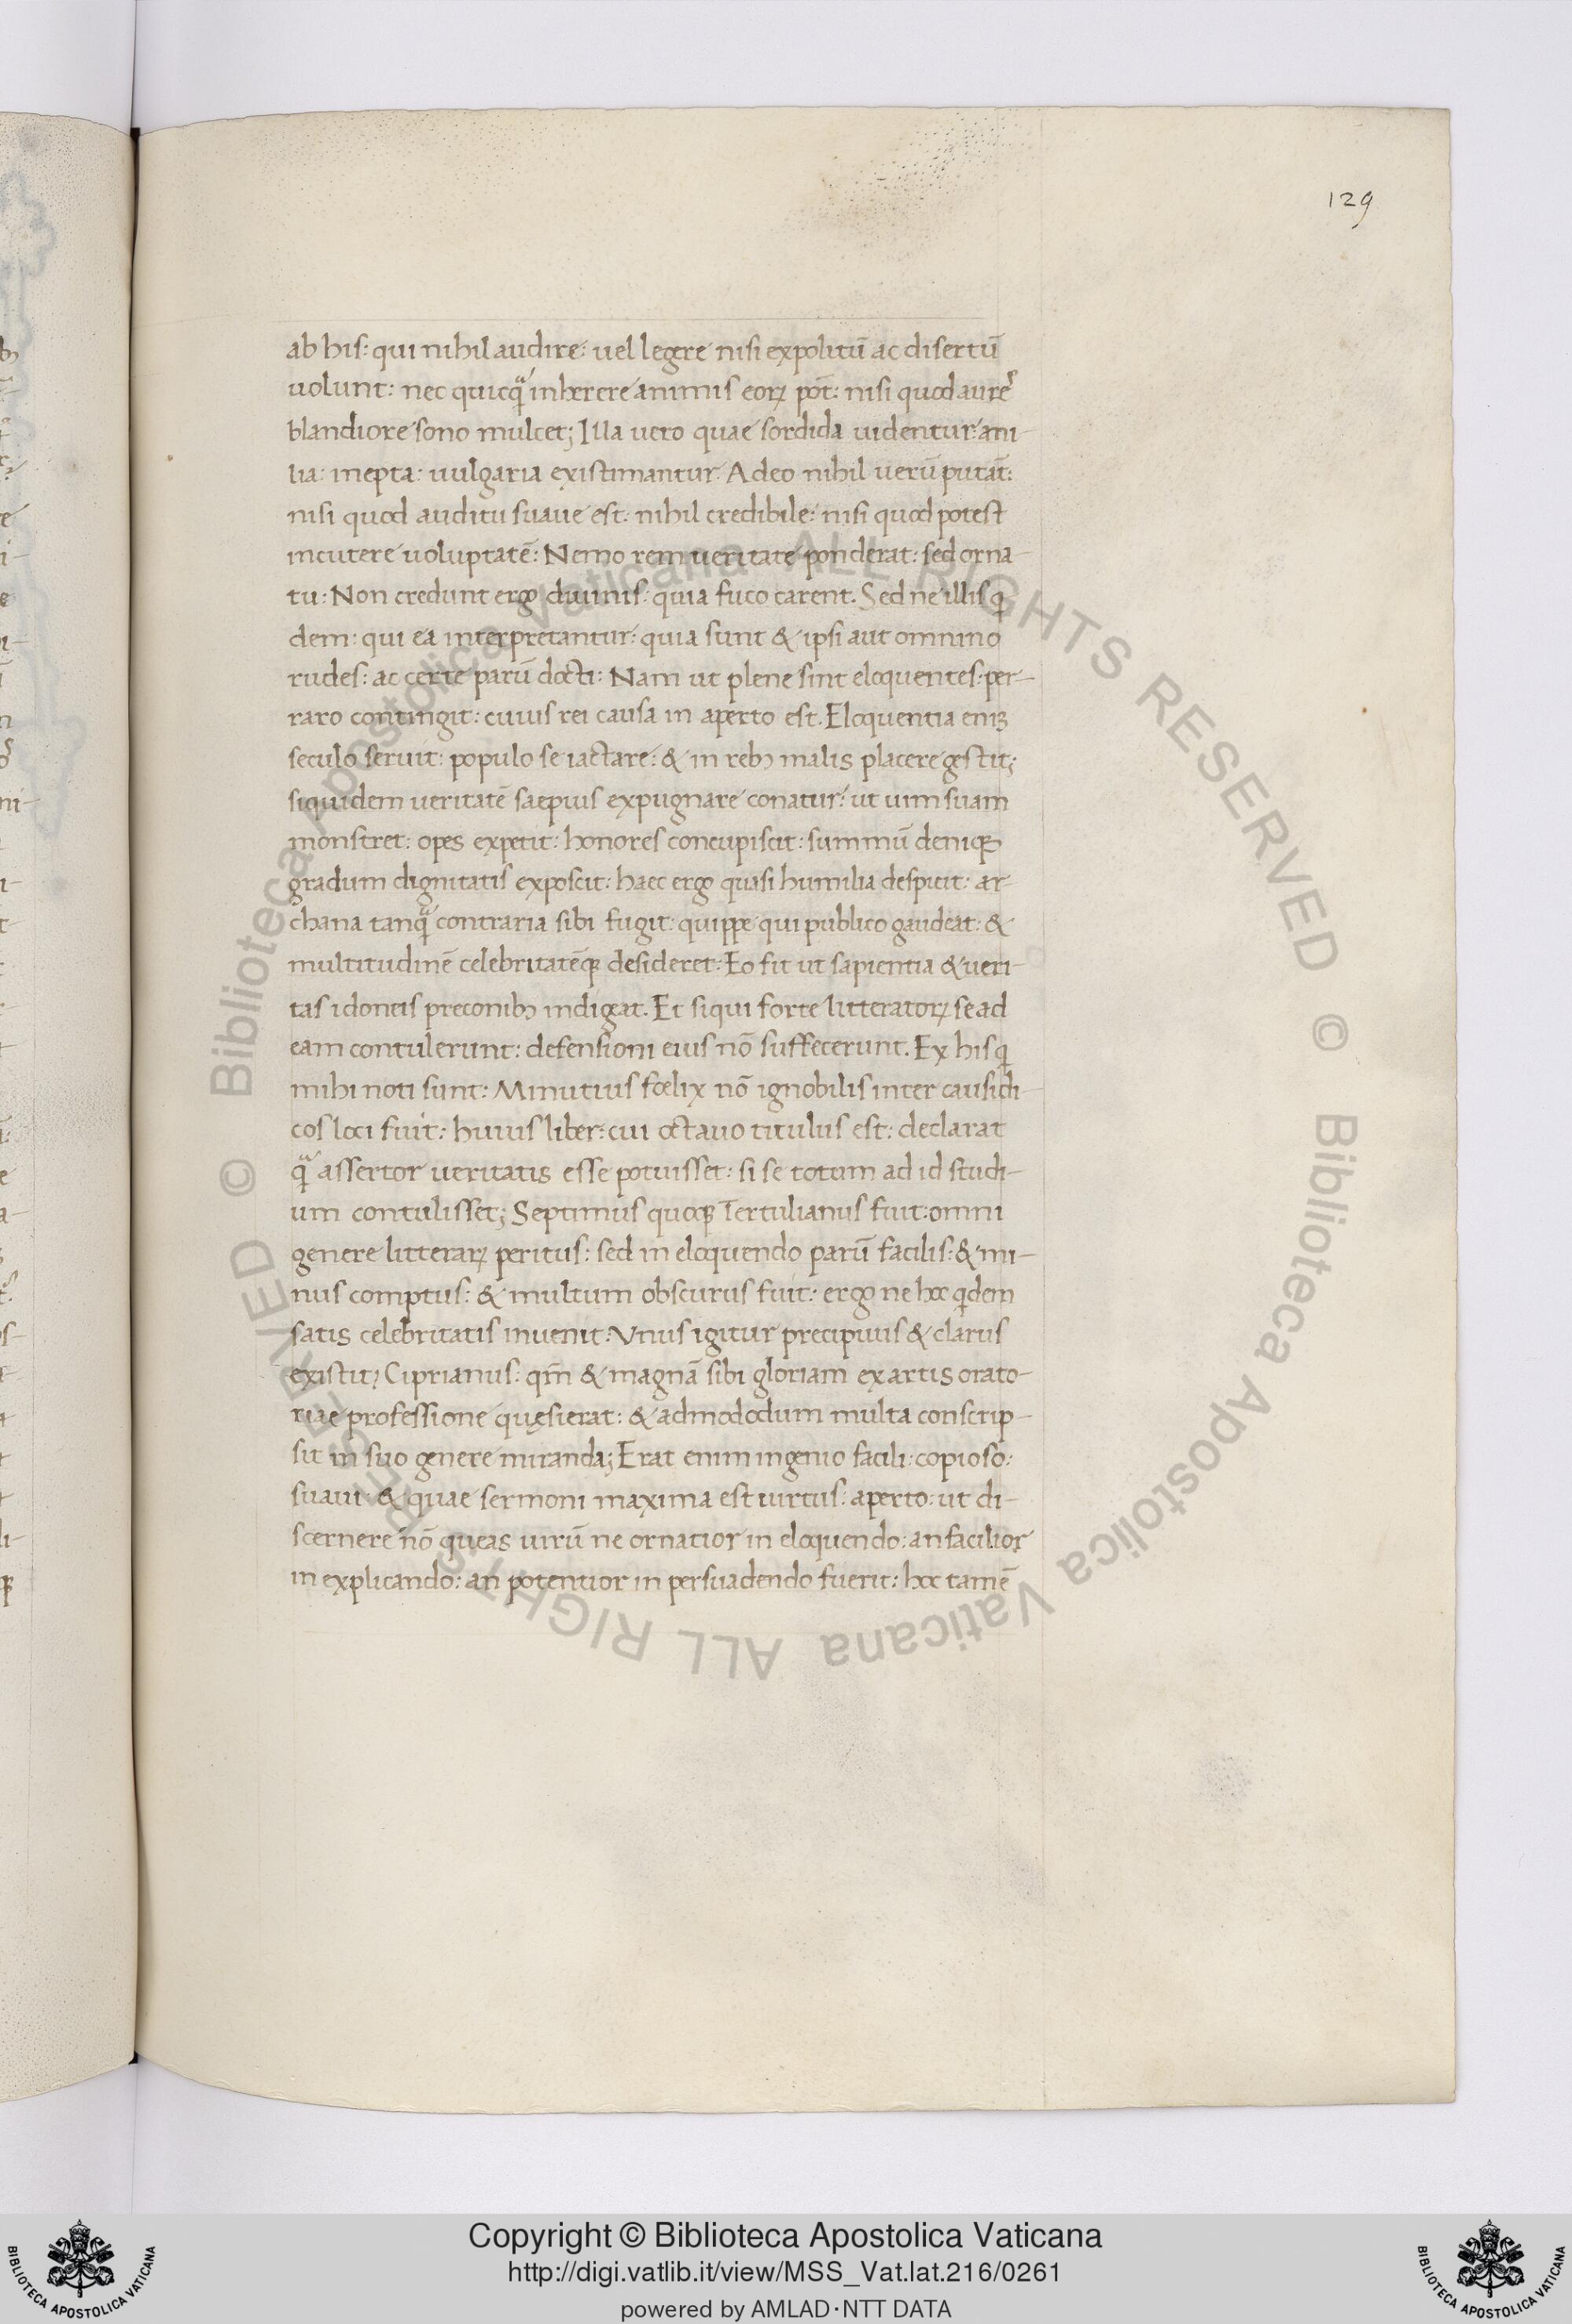 129
ab his: qui nihil audire: uel legere nisi expolitū ac disertū
uolunt: nec quicq̃ inherere animis eorꝝ pōt: nisi quod aures
blandiore sono mulcet; Illa uero quae sordida uidentur: ani-
lia: inepta: uulgaria existimantur. Adeo nihil uerū putāt:
nisi quod auditu suaue est: nihil credibile: nisi quod potest
incutere uoluptatē: Nemo rem ueritate ponderat: sed orna-
tu: Non credunt ergo diuinis: quia fuco carent. Sed ne illis q
dem: qui ea interpretantur: quia sunt & ipsi aut omnino
rudes: ac certe parū docti: Nam ut plene sint eloquentes: per-
raro contingit: cuius rei causa in aperto est. Eloquentia eniꝫ
seculo seruit: populo se iactare: & in rebꝫ malis placere gestit;
siquidem ueritatē saepius expugnare conatur: ut uim suam
monstret: opes expetit: honores concupiscit: summū deniqꝫ
gradum dignitatis exposcit: haec ergo quasi humilia despicit: ar-
chana tanq̃ contraria sibi fugit: quippe qui publico gaudeat: &
multitudinē celebritatēqꝫ desideret: Eo fit ut sapientia & ueri-
tas idoneis preconibꝫ indigeat. Et siqui forte litteratorꝝ se ad
eam contulerunt: defensioni eius nō suffecerunt. Ex his q
mihi noti sunt: Minutius fœlix nō ignobilis inter causidi-
cos loci fuit: huius liber: cui octauo titulus est: declarat
q̃ assertor ueritatis esse potuisset: si se totum ad id studi-
um contulisset; Septimius quoqꝫ Tertulianus fuit: omni
genere litterarꝝ peritus: sed in eloquendo parū facilis: & mi-
nus comptus: & multum obscurus fuit: ergo ne hoc qdem
satis celebritatis inuenit: Vnus igitur precipuus & clarus
existit? Ciprianus: qm̄ & magnā sibi gloriam ex artis orato-
riae professione quęsierat: & admododum multa conscrip-
sit in suo genere miranda; Erat enim ingenio facili: copioso:
suaui: & quae sermoni maxima est uirtus: aperto: ut di-
scernere nō queas uirū ne ornatior in eloquendo: an facilior
in explicando: an potentior in persuadendo fuerit: hoc tamē
© Biblioteca Apostolica Vaticana ALL RIGHTS RESERVED © Biblioteca Apostolica Vaticana ALL RIGHTS RESERVED
BIBLIOTECA APOSTOLICA VATICANA
Copyright © Biblioteca Apostolica Vaticana
http://digi.vatlib.it/view/MSS_Vat.lat.216/0261
powered by AMLAD·NTT DATA
BIBLIOTECA APOSTOLICA VATICANA